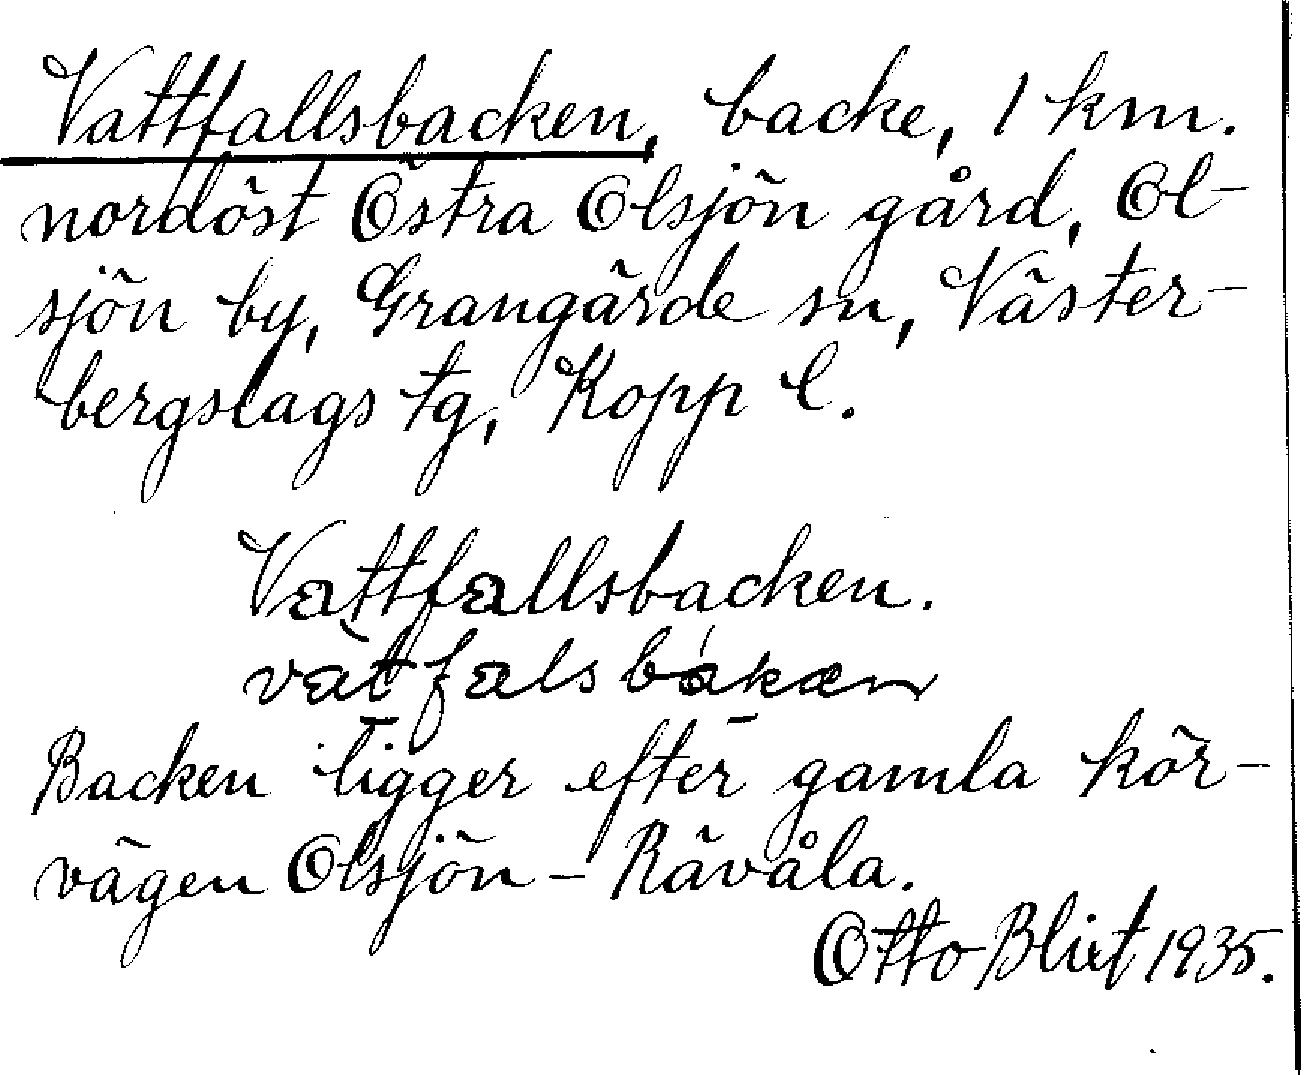 Vattfallsbacken, backe, 1 km.
nordöst Östra Olsjön gård, Ol-
sjön by, Grangärde sn, Väster-
bergslags tg, Kopp l.
Vattfallsbacken.
vatfalsbakæn
Backen ligger efter gamla kör-
vägen Olsjön - Rävåla.
Otto Blixt 1935.